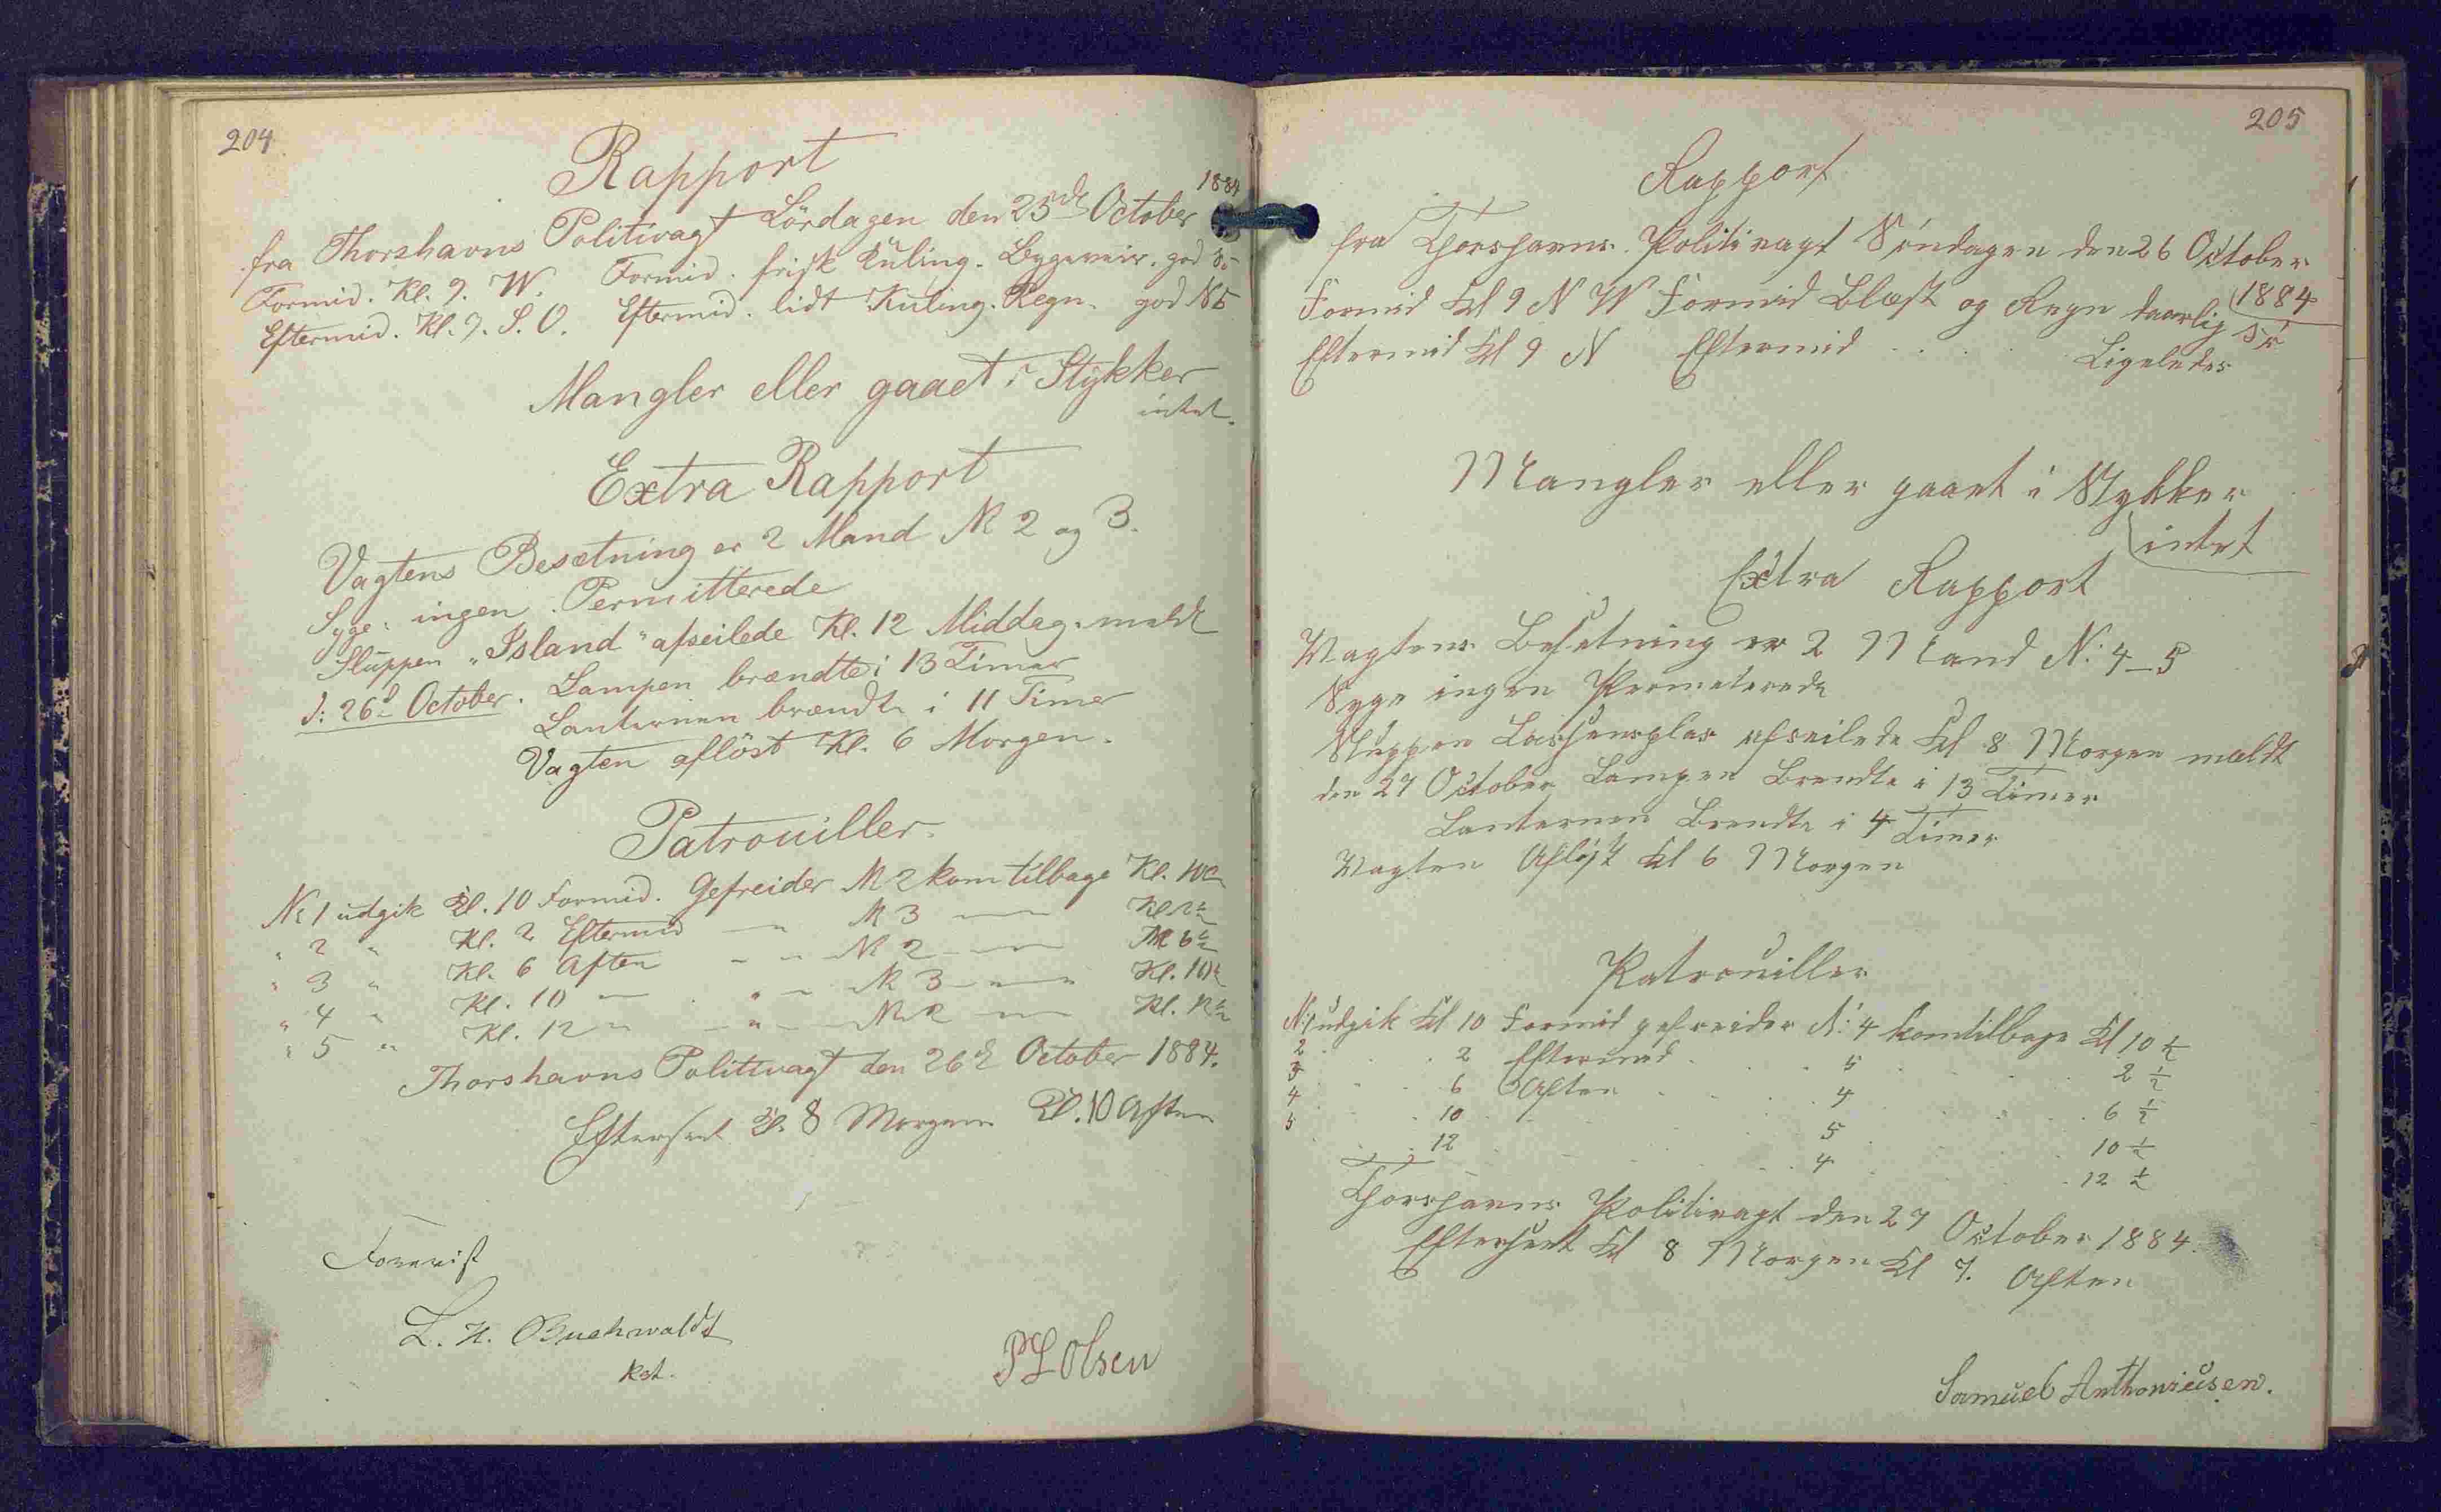 204
Rapport
fra Thorshavns Politivagt Lördagen den 25de October 1884
Formid. Kl. 9. W. Formid. frisk Kuling. Byggeveir. god
Eftermid. Kl. 9. S. O. Eftermid. lidt Kuling. Regn. god
Mangler eller gaaet i Stykker
intet.
Extra Rapport
Vagtens Besætning er 2 Mand No 2 og 3.
Syge: ingen Permitterede
Sluppen "Island" afseilede Kl. 12 Middag. meldt
d: 26d October. Lampen brændte i 13 Timer
Lanternen brændte i 11 Timer
Vagten aflöst Kl. 6 Morgen.
Patrouiller.
No 1 udgik Kl. 10 Formid. Gefreider No 2 kom tilbage Kl. 10½
" 2 " Kl. 2 Eftermid — " No 3 — Kl 2½
" 3 " Kl. 6 Aften - - No 2 — 6½
" 4 " Kl. 10 — " - No 3 — Kl. 10½
" 5 " Kl. 12 — " - No 2 — Kl. 12½
Thorshavns Politivagt den 26de October 1884.
Efterseet Kl. 8 Morgen Kl. 10 Aften
Foreviist
L. H. Buchwaldt
Kst.
P L Olsen
205
Rapport
fra Thorshavns Politivagt Söndagen den 26 October
1884
Formid Kl 9 N W Formid Blæst og Regn daarlig
Eftermid Kl 9 N Eftermid . . . Ligeledes
Mangler eller gaaet i Stykker
intet
Extra Rapport
Vagtens Besetning er 2 Mand N: 4-5
Syge ingen Permeterede
Sluppen afseilede Kl 8 Morgen meldt
den 27 October Lampen Brendte i 13 Timer
Lanternen Brendte i 4 Timer
Vagten Afløst Kl 6 Morgen
Patrouiller
N: 1 udgik Kl 10 Formid gefreider N: 4 komtilbage Kl 10 ½
2 . . 2 Eftermid . . 5 . . 2 ½
3 . . 6 Aften . . 4 . . 6 ½
4 . . 10 . . 5 . . 10 ½
5 . . 12 . . 4 . . 12 ½
Thorshavns Politivagt den 27 October 1884.
Efterseet Kl 8 Morgen Kl 7. Aften
Samuel Anthoniusen.